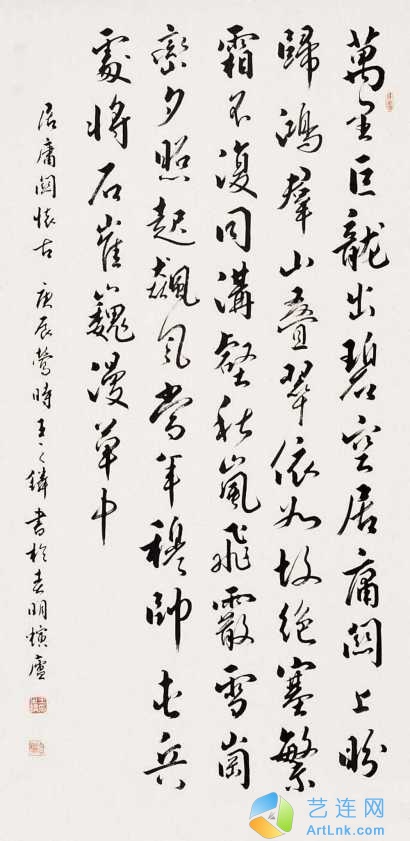 萬里巨龍出碧空居庸關上盼
歸鴻羣山叠翠依如故絕塞繁
霜不復同溝壑秋嵐飛霰雪崗
巒夕照起飆風當年穆帥屯兵
處將石崔巍漫草中
居庸關懷古 庚辰鶯時王之鏻書於春明廬
艺连网
ArtLnk.com